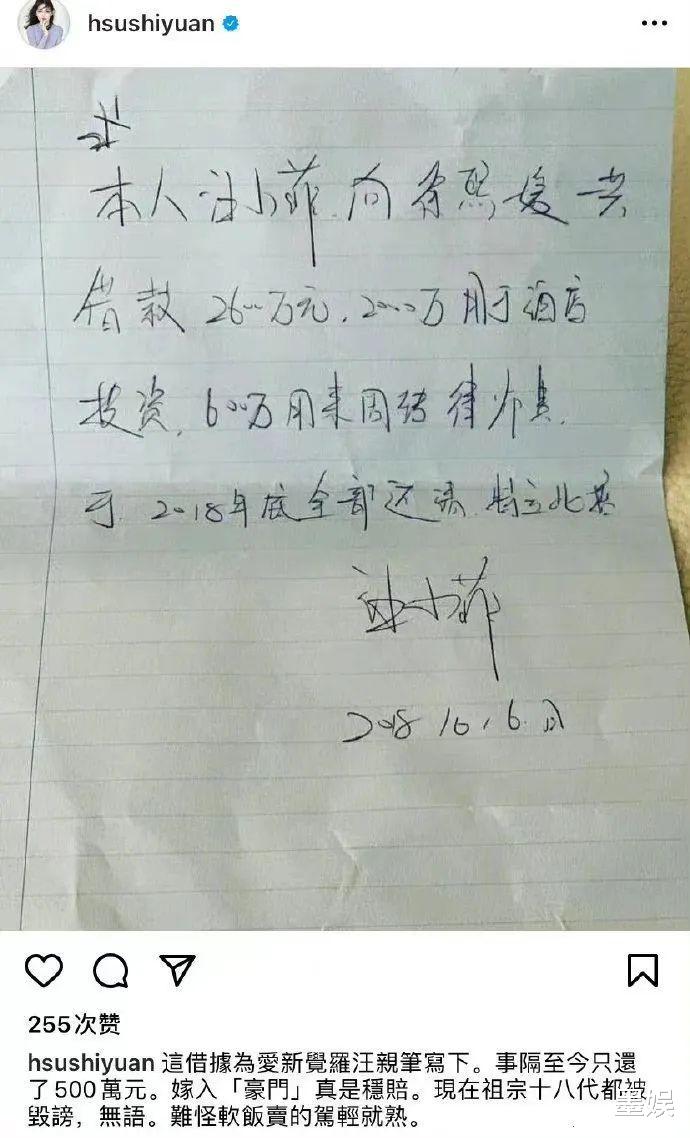 hsushiyuan
本人汪小菲向徐熙媛共
借款2600万元.2000万用于酒店
投资,600万用来周转律师费,
于2018年底全部还清,特立此据
汪小菲
2018 10.6.日
255次赞
hsushiyuan 這借據為愛新覺羅汪親筆寫下。事隔至今只還
了500萬元。嫁入「豪門」真是穩賠。現在祖宗十八代都被
毀謗，無語。難怪軟飯賣的駕輕就熟。
墨娱